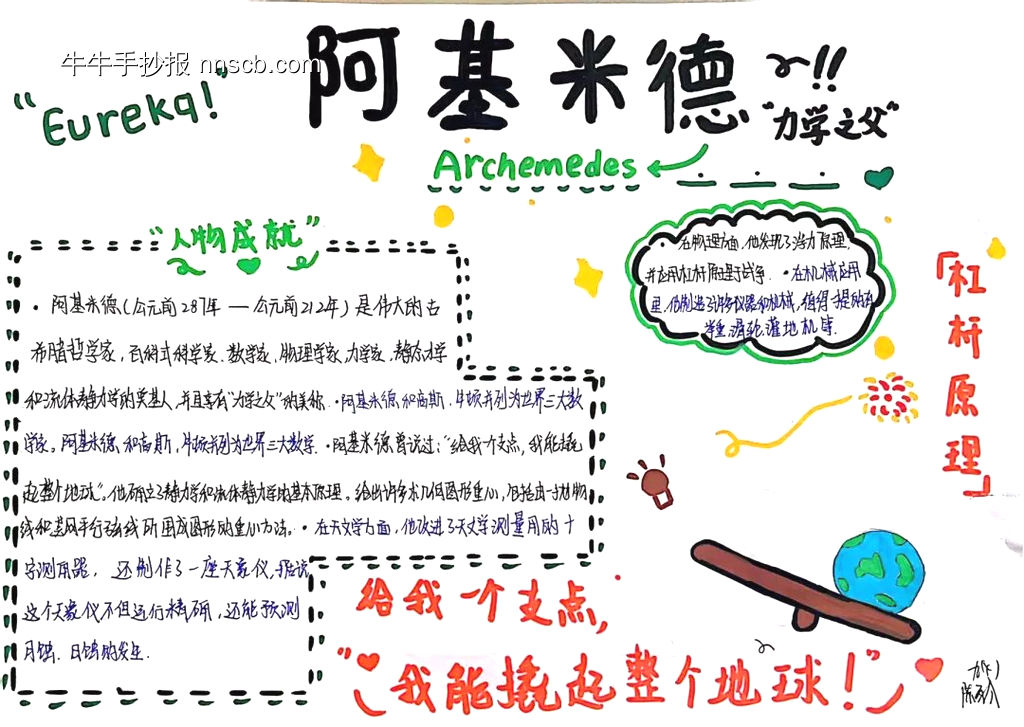 牛牛手抄报 nnscb.com
阿基米德!!
"Eureka!"
"力学之父"
Archemedes
"人物成就"
·阿基米德(公元前287年 — 公元前212年)是伟大的古
希腊哲学家,百科式科学家、数学家、物理学家、力学家、静态力学
和流体静力学的奠基人,并且享有"力学之父"的美称.·阿基米德和高斯,牛顿并列为世界三大数
学家。阿基米德和高斯,牛顿并列为世界三大数学.·阿基米德曾说过:"给我一个支点,我能撬
起整个地球"。他确立了静力学和流体静力学的基本原理。给出许多求几何图形重心,包括由一抛物
线和其网平行弦线所围成图形的重心方法。·在天文学方面,他改进了天文学测量用的十
字测角器,还制作了一座天象仪,据说
这个天象仪不但运行精确,还能预测
月蚀、日蚀的发生.
·在物理方面,他发现了浮力原理,
并应用杠杆原理于战争.·在机械应用
里,他制造了仪器和机械,值得一提的有
举重滑轮、灌地机等.
「杠杆原理」
给我一个支点,
"我能撬起整个地球!"